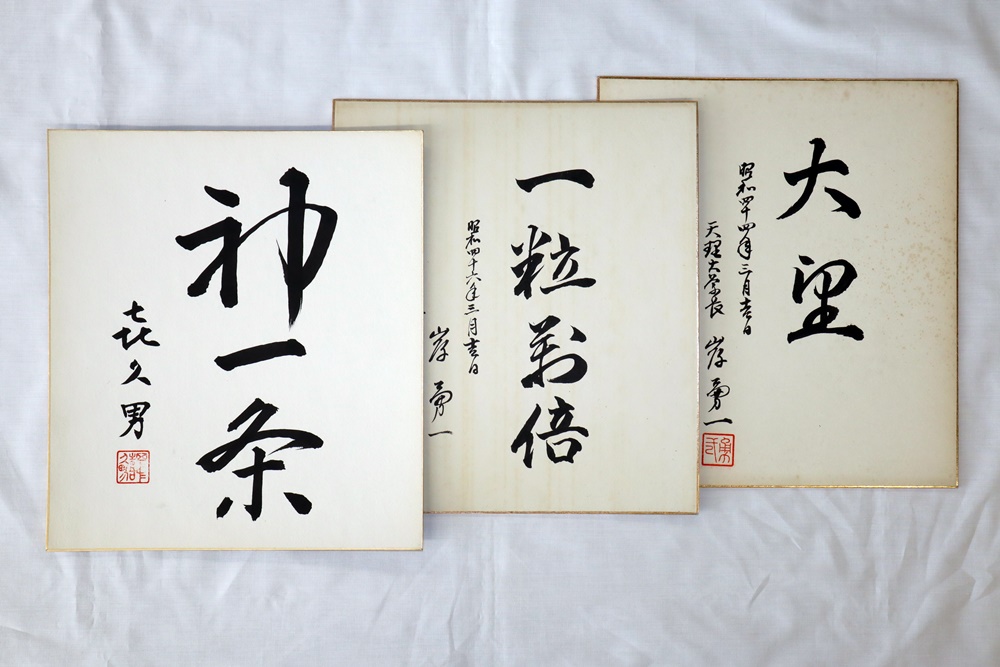 大望
昭和四十四年三月吉日
天理大学長 岸勇一
一粒万倍
昭和四十六年三月吉日
岸勇一
神一条
喜久男